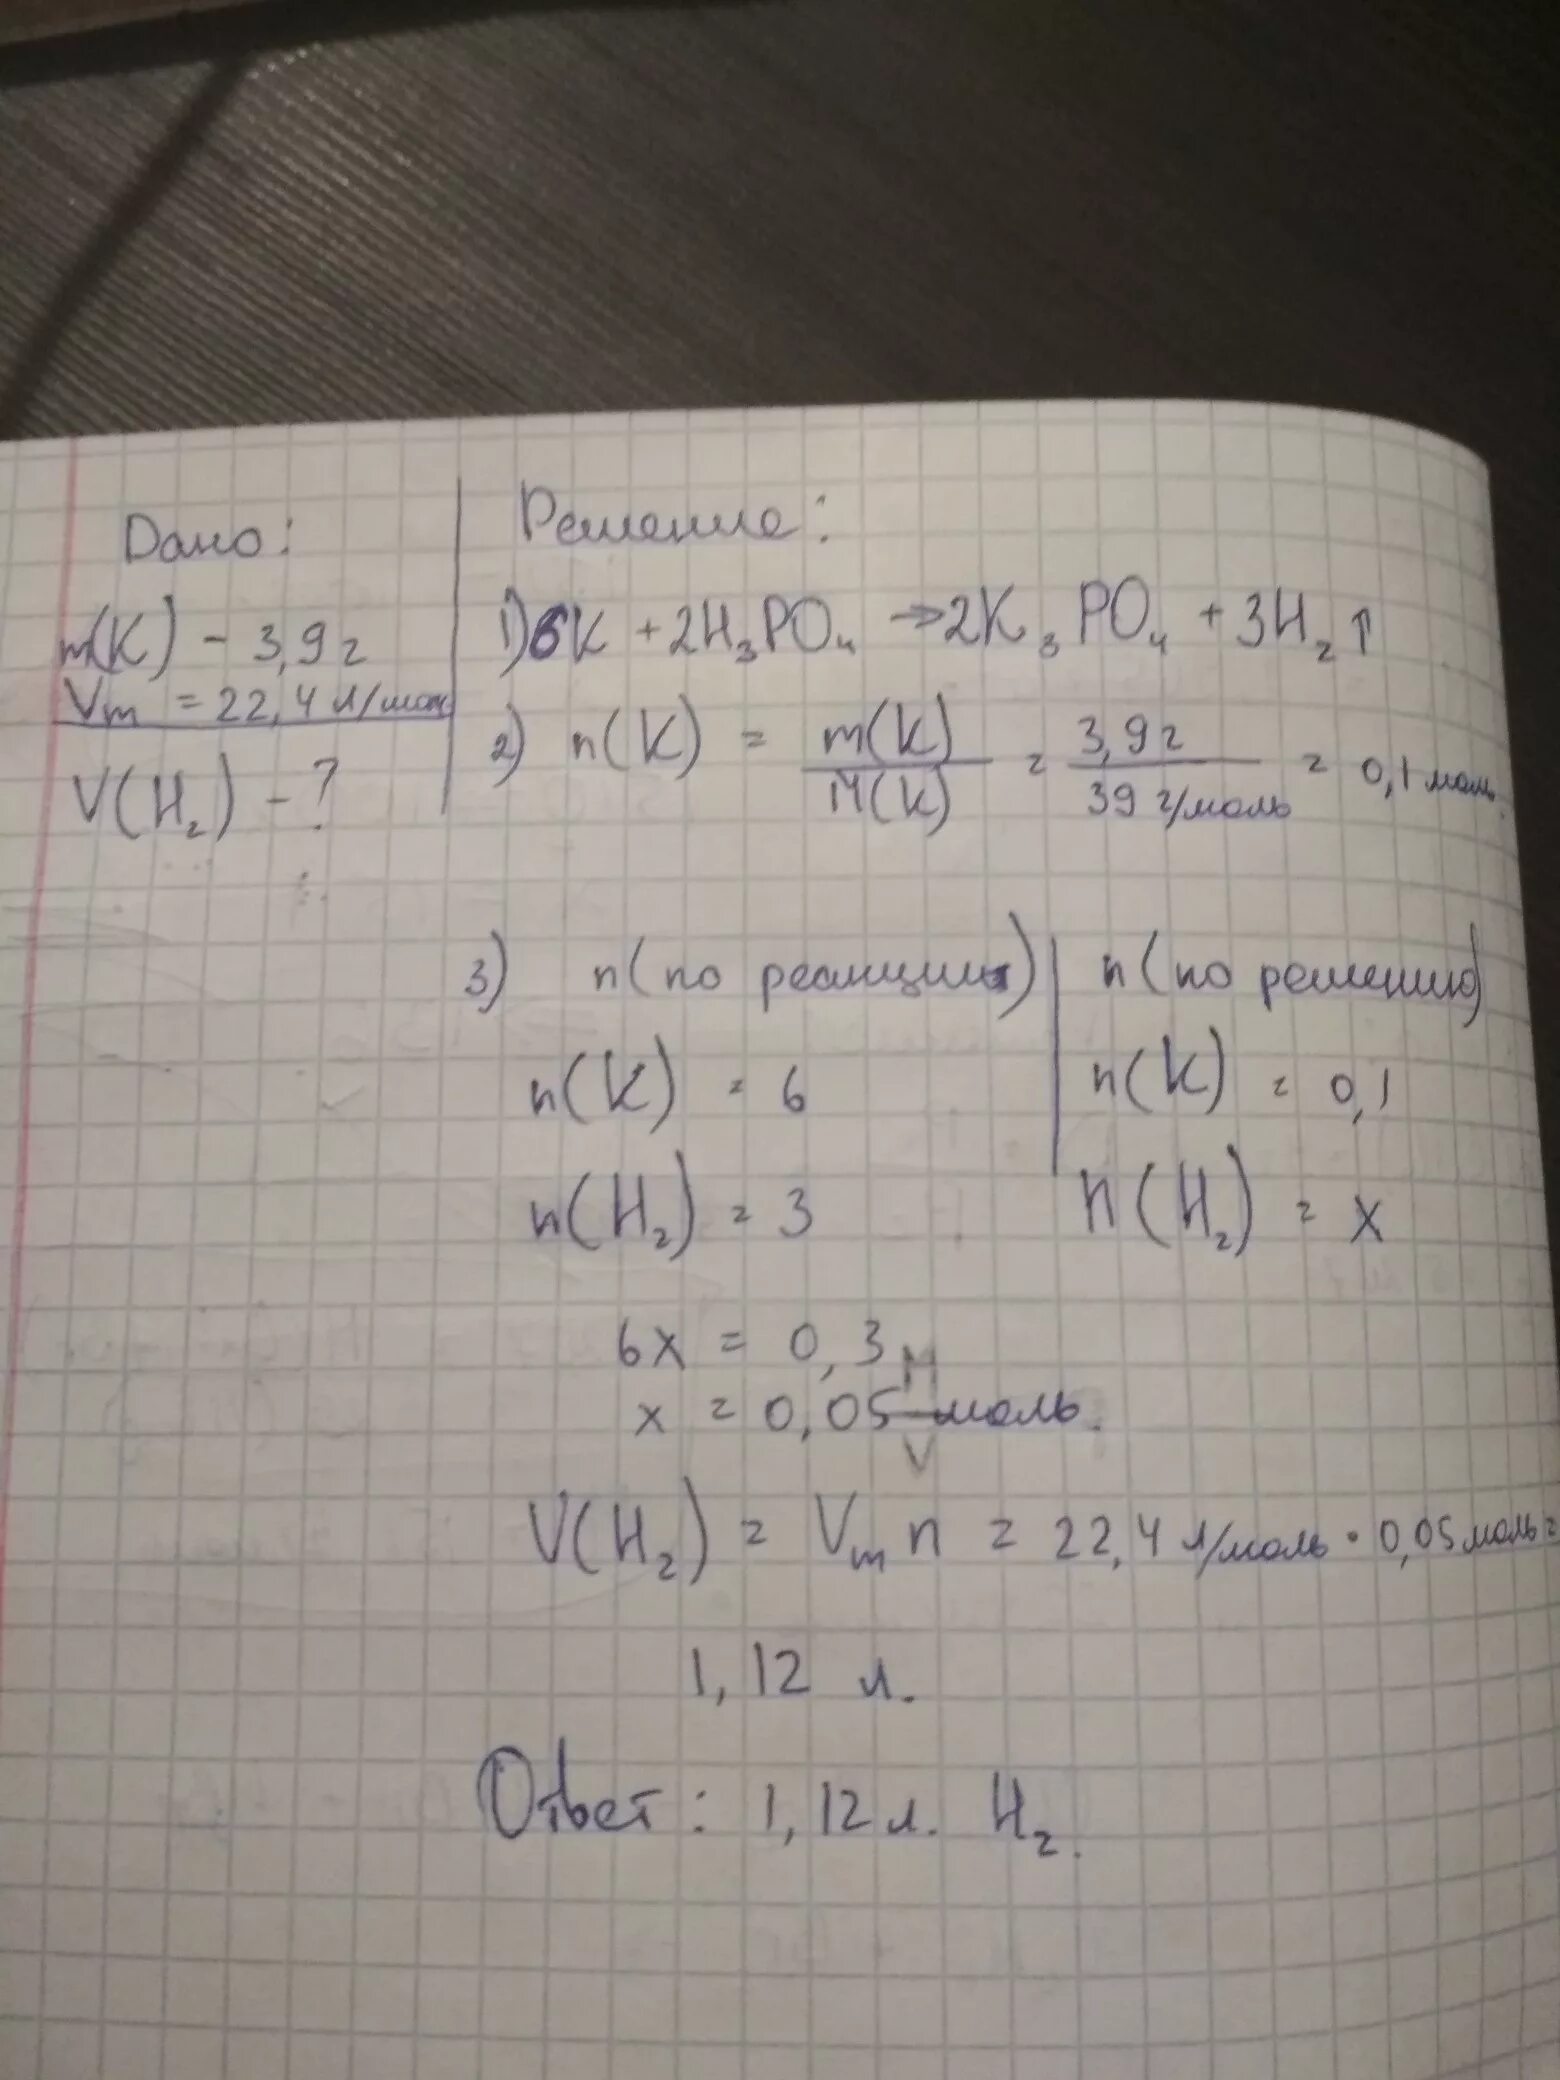 Дано:
m(K) - 3,9 г
Vm = 22,4 л/мол
V(H₂) - ?
Решение:
1) 6K + 2H₃PO₄ → 2K₃PO₄ + 3H₂↑
2) n(K) = m(K)/M(K) = 3,9 г/39 г/моль = 0,1 моль.
3) n(по реакции) | n(по решению)
n(K) = 6 | n(K) = 0,1
n(H₂) = 3 | n(H₂) = x
6x = 0,3
M
x = 0,05 моль.
V
V(H₂) = Vm n = 22,4 л/моль · 0,05 моль =
1,12 л.
Ответ: 1,12 л. H₂.